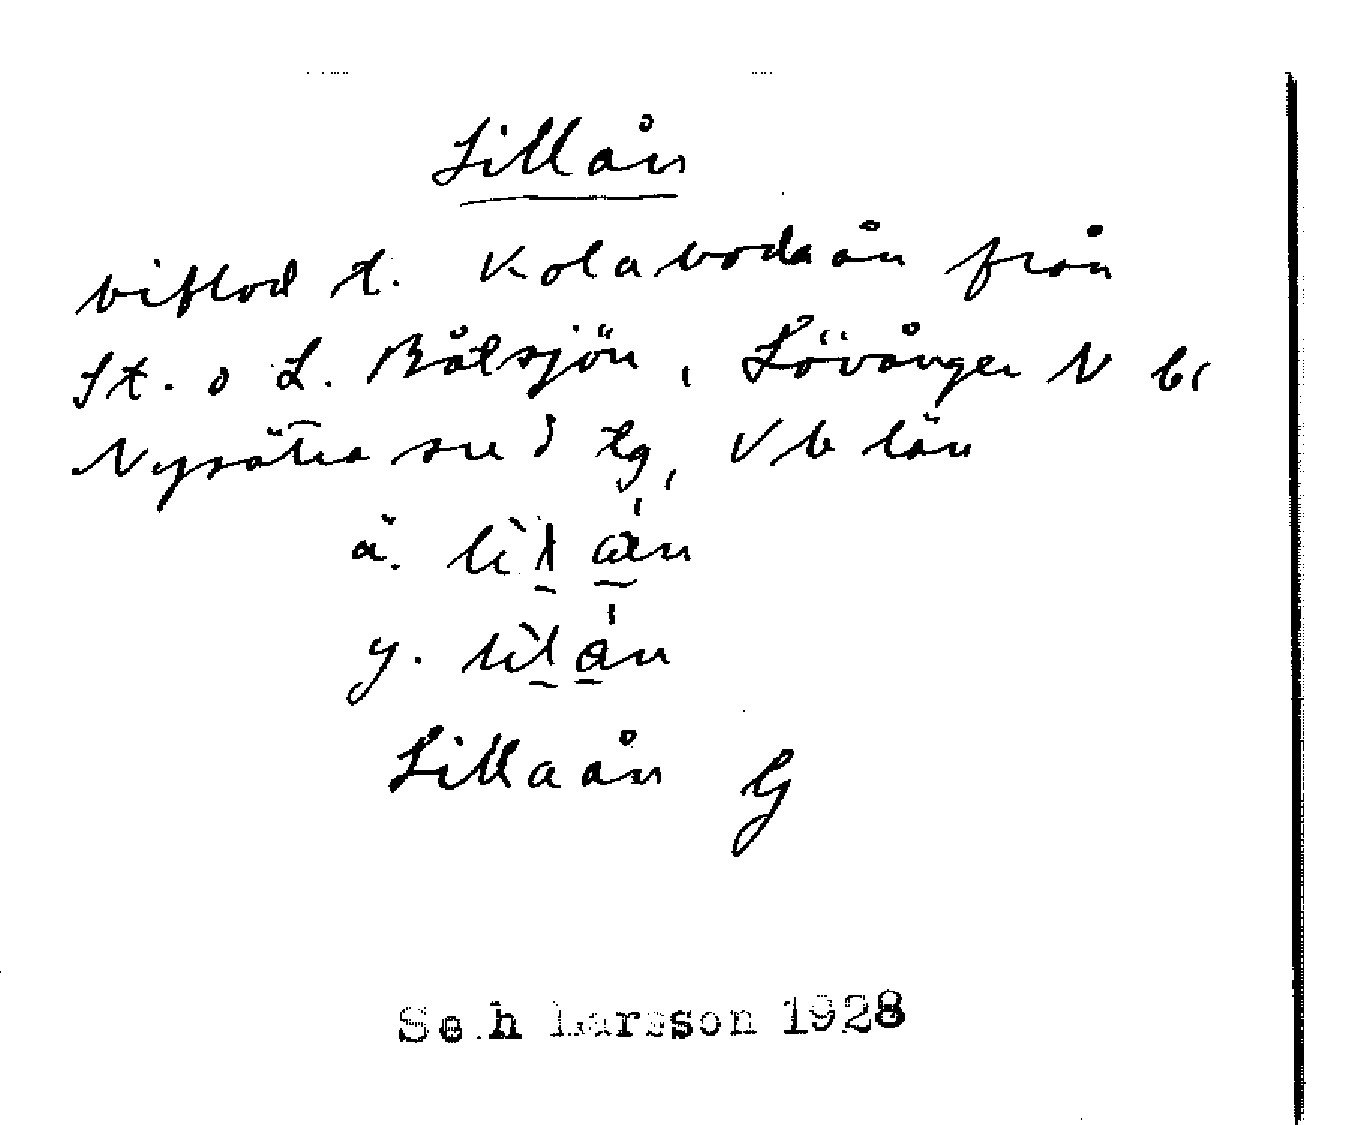 Lillån
biflod t. Kolabodaån från
St. o L. Bålsjön, Lövånger N bi
Nysätra sn o tg, Vb län
ä. lìlán
y. lìlán
Lillaån G
Seth Larsson 1928